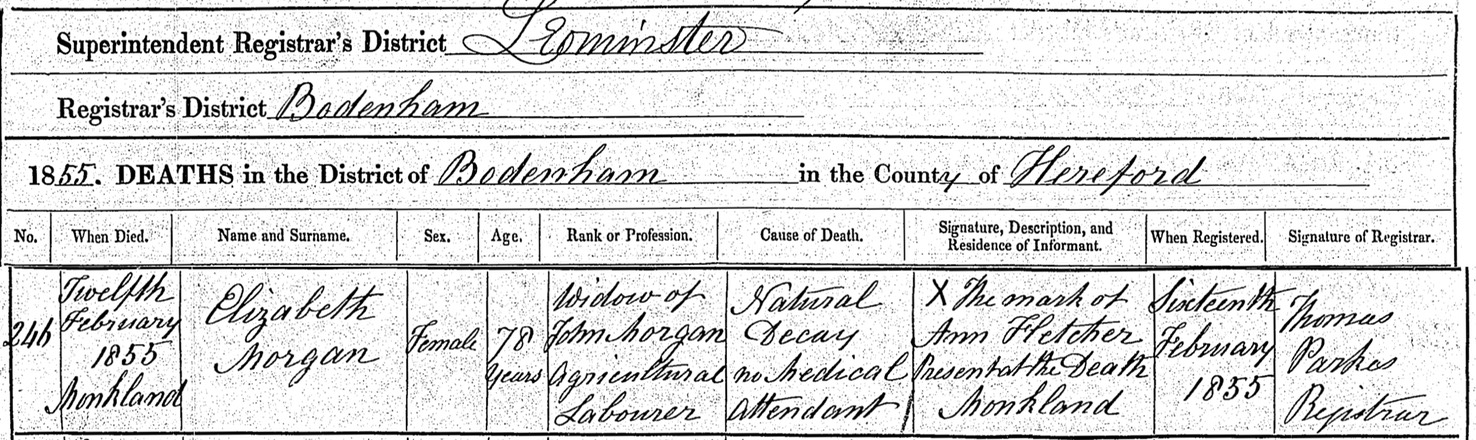 Superintendent Registrar's District Leominster
Registrar's District Bodenham
1855. DEATHS in the District of Bodenham in the County of Hereford
No. When Died. Name and Surname. Sex. Age. Rank or Profession. Cause of Death. Signature, Description, and Residence of Informant. When Registered. Signature of Registrar.
246
Twelfth
February
1855
Monkland
Elizabeth
Morgan
Female
78
years
Widow of
John Morgan
Agricultural
Labourer
Natural
Decay
no Medical
Attendant
X The mark of
Ann Fletcher
Present at the Death
Monkland
Sixteenth
February
1855
Thomas
Parkes
Registrar